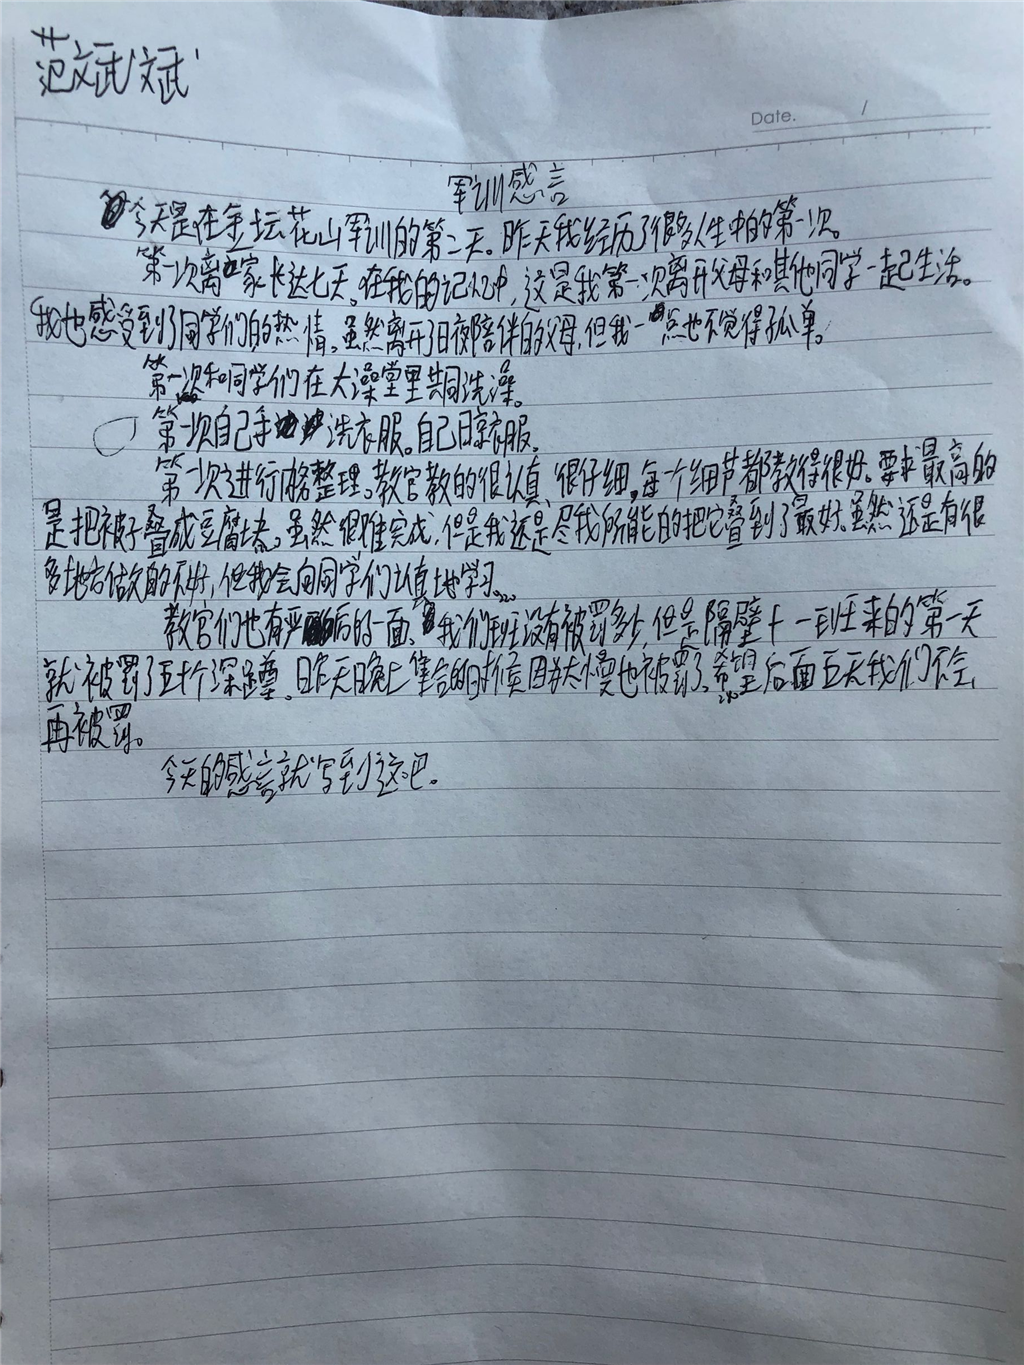 范斌斌
Date. /
军训感言
今天是在金坛花山军训的第二天。昨天我经历了很多人生中的第一次。
第一次离家长达七天。在我的记忆中,这是我第一次离开父母和其他同学一起生活。
我也感受到了同学们的热情。虽然离开了日夜陪伴的父母,但我一点也不觉得孤单。
第一次和同学们在大澡堂里共同洗澡。
第一次自己手洗衣服。自己晾衣服。
第一次进行内务整理。教官教的很认真、很仔细,每个细节都教得很好。要求最高的
是把被子叠成豆腐块。虽然很难完成,但是我还是尽我所能的把它叠到了最好。虽然还是有很
多地方做的不好,但我会向同学们认真地学习。
教官们也有严厉的一面、我们班没有被罚多少,但是隔壁十一班来的第一天
就被罚了五十个深蹲。昨天晚上集合的时候因为太慢也被罚了。希望后面五天我们不会
再被罚。
今天的感言就写到这吧。